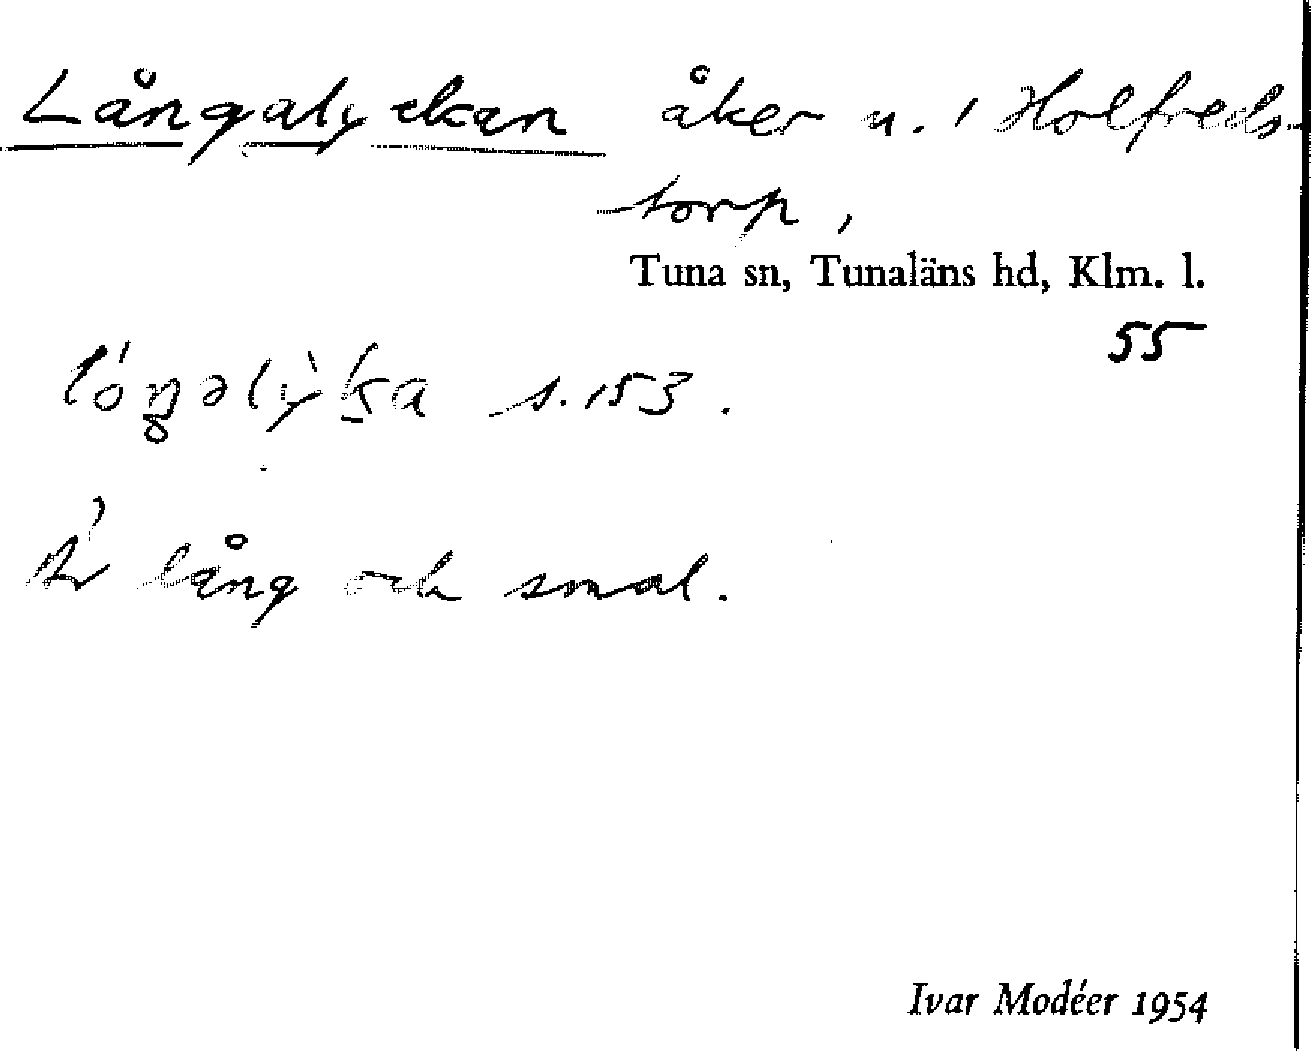 Långalyckan åker u. 1 Holfreds-
torp,
Tuna sn, Tunaläns hd, Klm. l.
55
s. 153.
Är lång och smal.
Ivar Modéer 1954